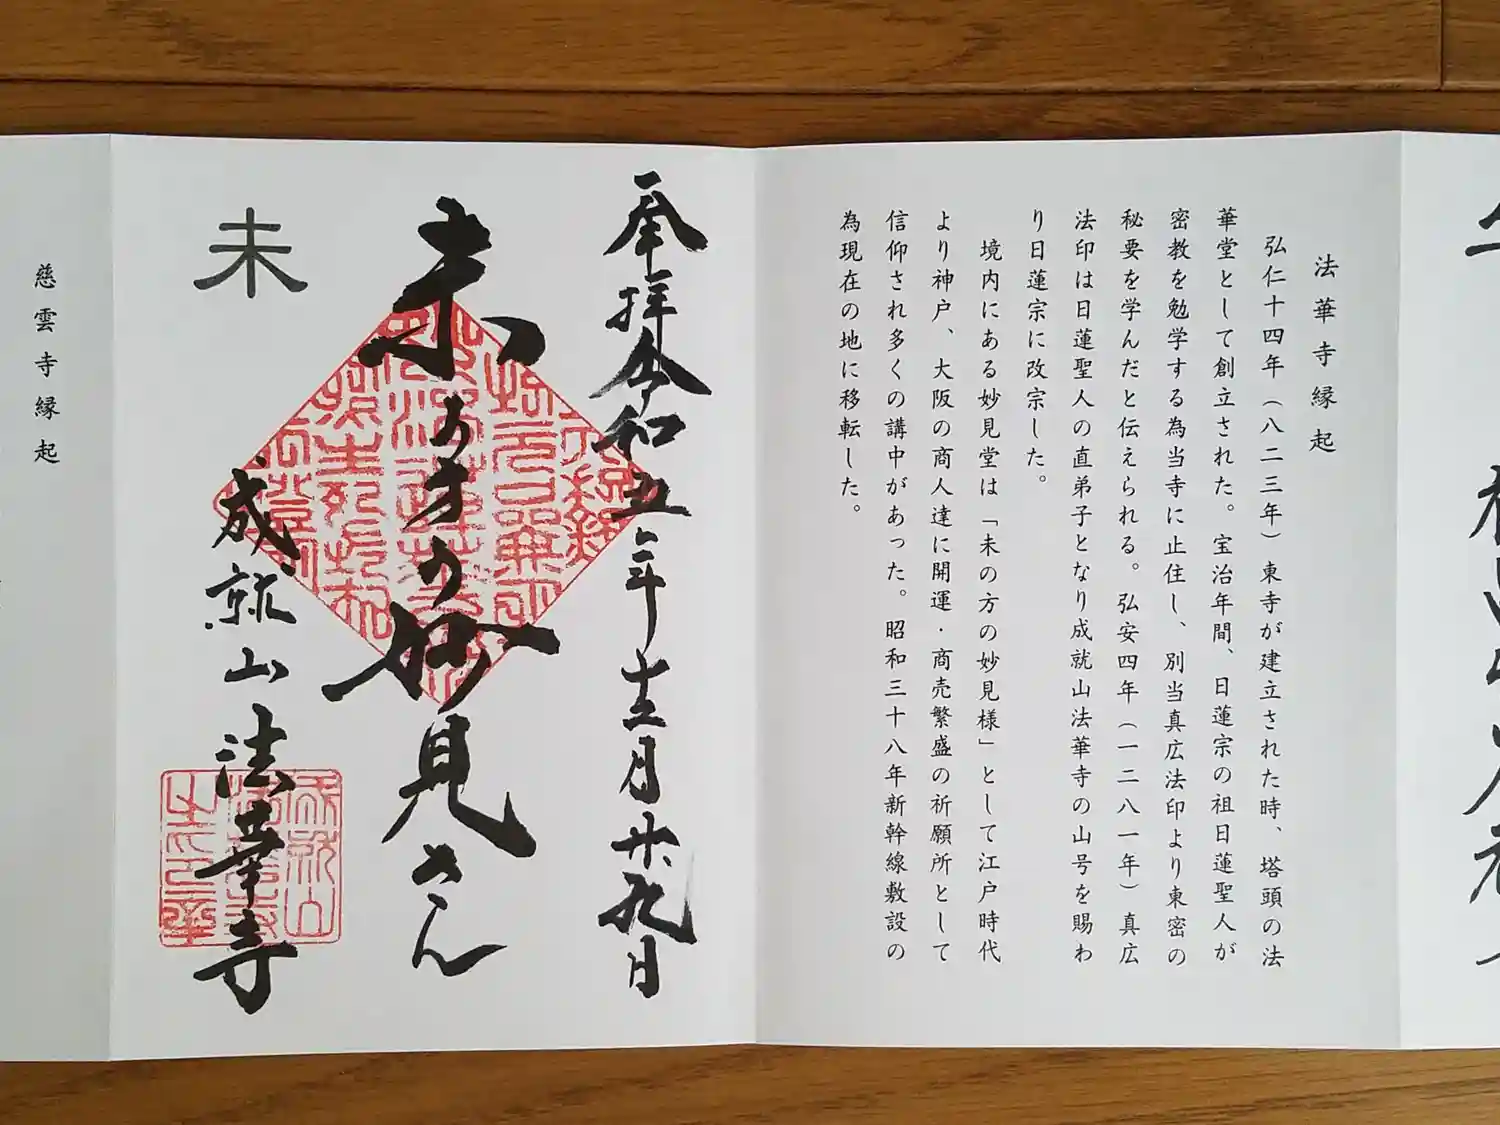 法華寺縁起
弘仁十四年（八二三年）東寺が建立された時、塔頭の法
華堂として創立された。宝治年間、日蓮宗の祖日蓮聖人が
密教を勉学する為当寺に止住し、別当真広法印より東密の
秘要を学んだと伝えられる。弘安四年（一二八一年）真広
法印は日蓮聖人の直弟子となり成就山法華寺の山号を賜わ
り日蓮宗に改宗した。
境内にある妙見堂は「未の方の妙見様」として江戸時代
より神戸、大阪の商人達に開運・商売繁盛の祈願所として
信仰され多くの講中があった。昭和三十八年新幹線敷設の
為現在の地に移転した。
奉拝令和五年十二月廿九日
未の方の妙見さん
未
成就山法華寺
慈雲寺縁起